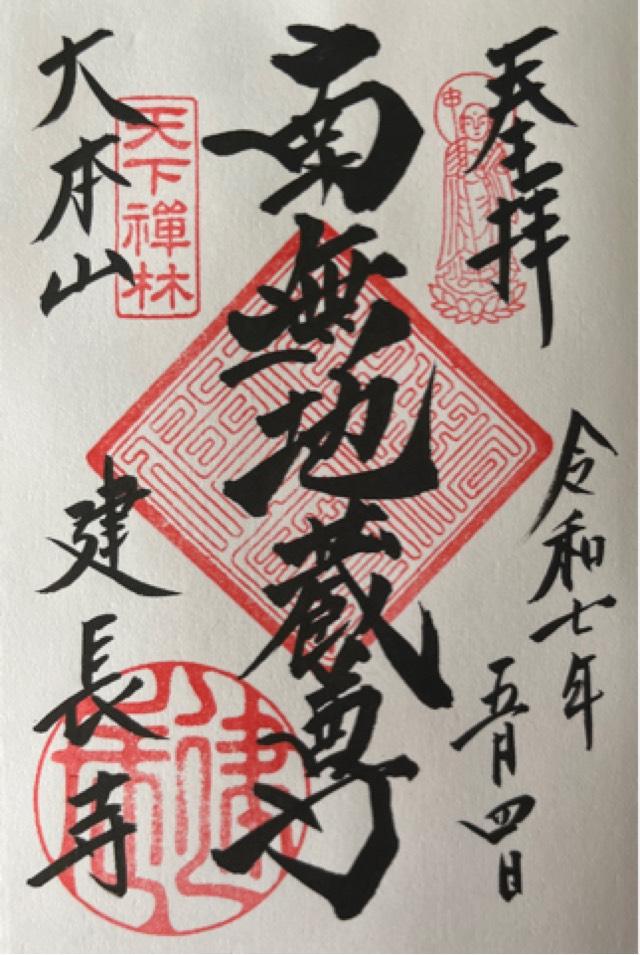 奉拝
令和七年
五月四日
南無地蔵尊
天下禅林
大本山
建長寺